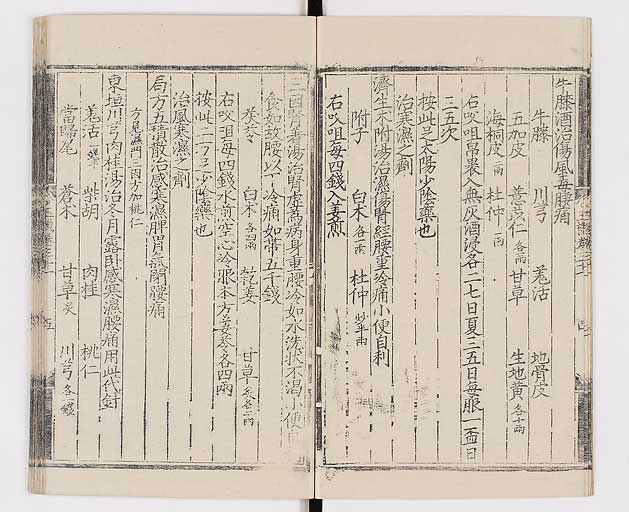 牛膝酒治傷風毒腰痛
牛膝 川芎 羗活 地骨皮
五加皮 薏苡仁各一兩 甘草 生地黄各十兩
海桐皮二兩 杜仲一兩
右㕮咀帛裹入無灰酒浸冬二七日夏三五日每服一盃日
三五次
按此足太陽少陰藥也
治寒濕之劑
濟生朮附湯治濕傷腎經腰重冷痛小便自利
附子 白朮各一兩 杜仲炒半兩
右㕮咀每四錢入姜煎
三因腎着湯治腎虛爲病身重腰冷如水洗狀不渴小便自
食如故腰以下冷痛如帶五千錢
茯苓 白朮各四兩 乾姜 甘草炙各二兩
右㕮咀每四錢水煎空心冷服本方姜苓各四兩
按此二方足少陰藥也
治風寒濕之劑
局方五積散治感寒濕脾胃氣閉腰痛
方見濕門三因方加桃仁
東垣川芎肉桂湯治冬月露卧感寒濕腰痛用此代針
羗活 柴胡 肉桂 桃仁
當歸尾 蒼朮 甘草炙 川芎各一錢